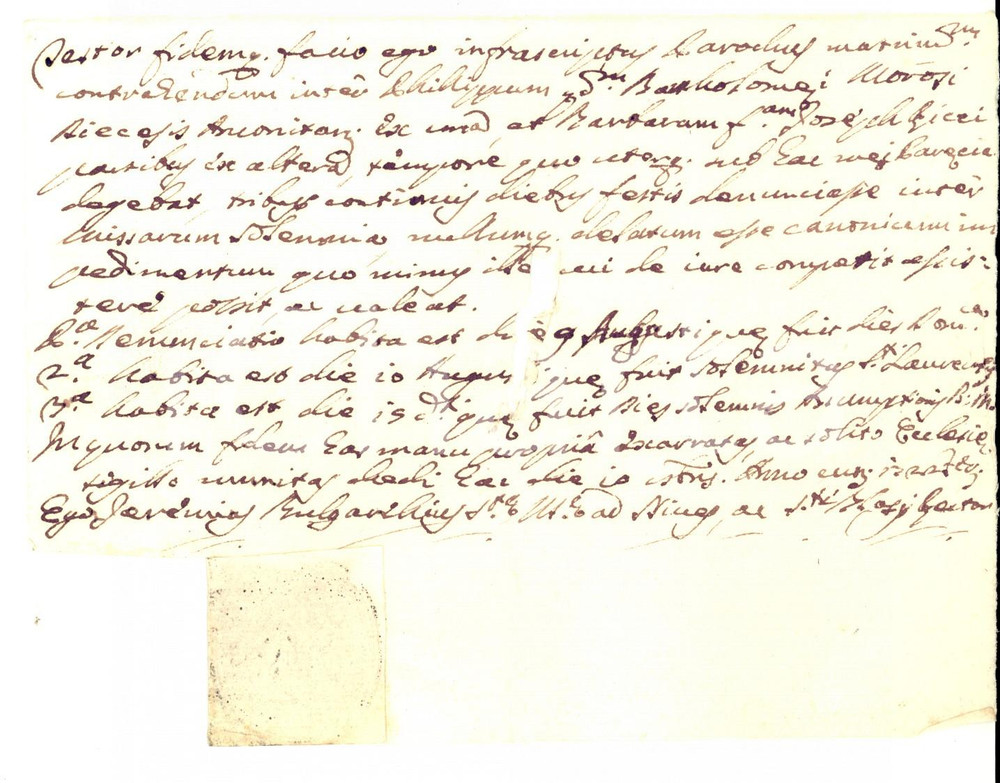 Testor fidemq. facio ego infrascriptus Parochus matrim.m
contrahendum inter Philippum q.dm Bartholomei Morosi
Diecesis Anconitan. Ex una et Barbaram f.am Joseph Ricci
partibus ex altera, tempore quo uterq. sub hac mea Parecia
degebat, tribus continuis diebus festis denunciasse inter
Missarum solemnia nullumq. delatum esse canonicum im
pedimentum quo minus ille cui de iure competit assis-
tere possit, ac valeat.
P.a Denunciatio habita est die 9 Augusti que fuit dies Dom.a
2.a habita est die 10 Augusti que fuit solemnitas S.ti Laurentij
3.a habita est die 15 d.ti que fuit Dies solemnis Assumptionis B.
In quorum fidem has manu propria exarratas, ac solito Ecclesie
sigillo munitas dedi hac die 10 Anno
Ego Jeremias ad Nives, ac S.ti Blasij Rector